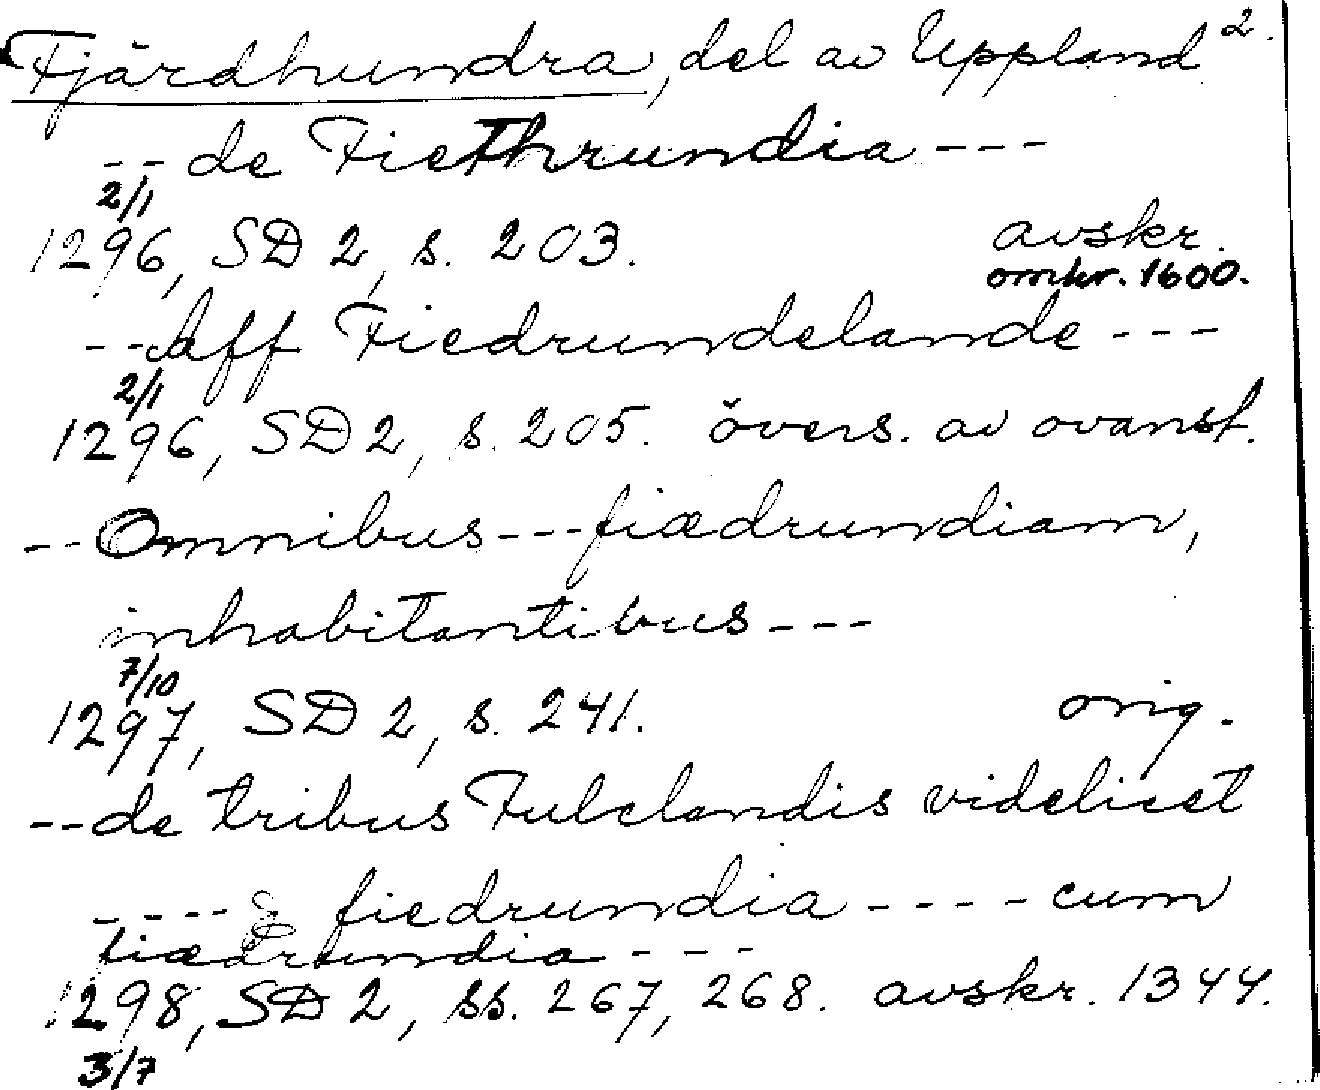 Fjärdhundra, del av Uppland 2.
-- de FieThrundia ---
2/1
1296, SD 2, s. 203. avskr.
omkr. 1600.
--Aff Fiedrundelande ---
2/1
1296, SD 2, s. 205. övers. av ovanst.
--Omnibus---fiædrundiam,
inhabitantibus---
7/10
1297, SD 2, s. 241. orig.
--de tribus Fulclandis videlicet
---- fiedrundia ---- cum
fiædrundia ---
1298, SD 2, ss. 267, 268. avskr. 1344.
3/7